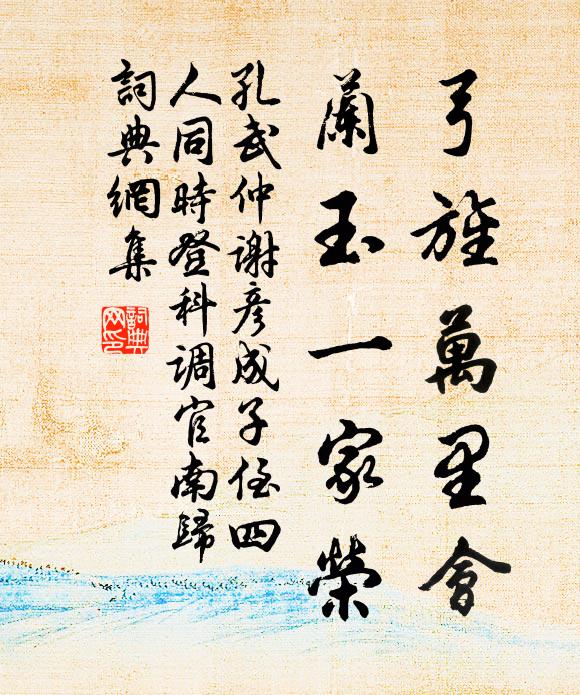 弓旌萬里會
蘭玉一家榮
孔武仲謝彥成子侄四
人同時登科調官南歸
詞典網集
詞典網印